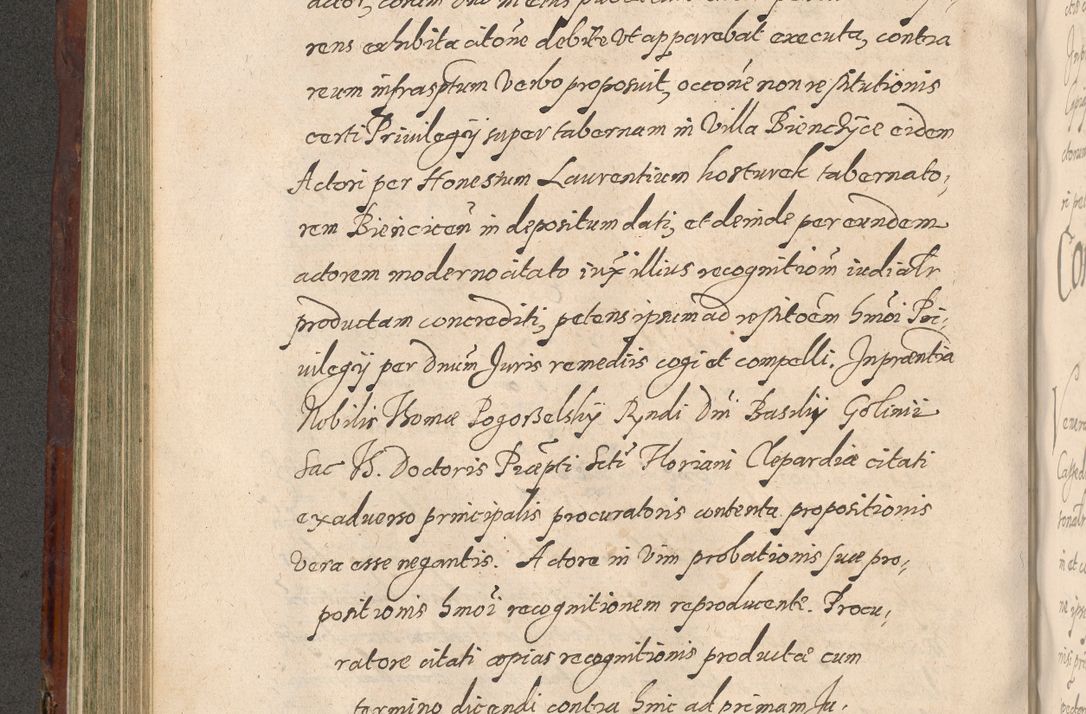 rens exhibita citoñe debite vt apparebat executa, contra
reum infrasptum Verbo proposuit, occoñe non restitutionis
certi Priuilegÿ super tabernam in Villa Bienchÿce eidem
Actori per Honestum Laurentium kosturek tabernato,
rem Biencicen̄ in depositum dati, et deinde per eundem
actorem moderno citato iux̄ illius recognitiom̄ iudialr
productam concrediti, petens ipsum ad restitōem hmōi Pri,
uilegÿ per dnum̄ Juris remediis cogi et compelli. In pr̄aentia
Nobilis Thomæ Pogorßelskÿ Rndi Dni Basilÿ Golinii
Sac Th. Doctoris Præpti Scti Floriani Clepardiæ citati
ex aduerso principalis procuratoris contenta propositionis
vera esse negantis. Actore in Vim probationis suæ pro,
positionis hmōi recognitionem reproducente. Procu,
ratore citati copias recognitionis productæ cum
termino dicendi contra hinc ad primam Ju,